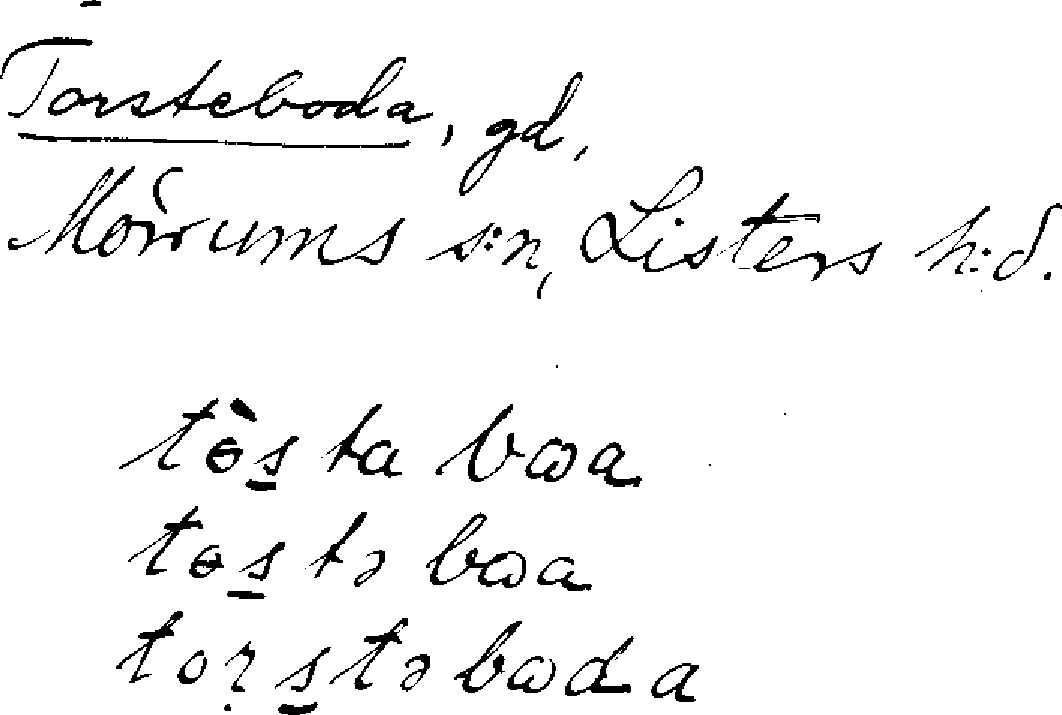 Torsteboda, gd,
Mörrums s:n, Listers h:d.
tɵ̀s̱ ta bɷa
tɵs̱ tə bɷa
toṛs̱təbɷda